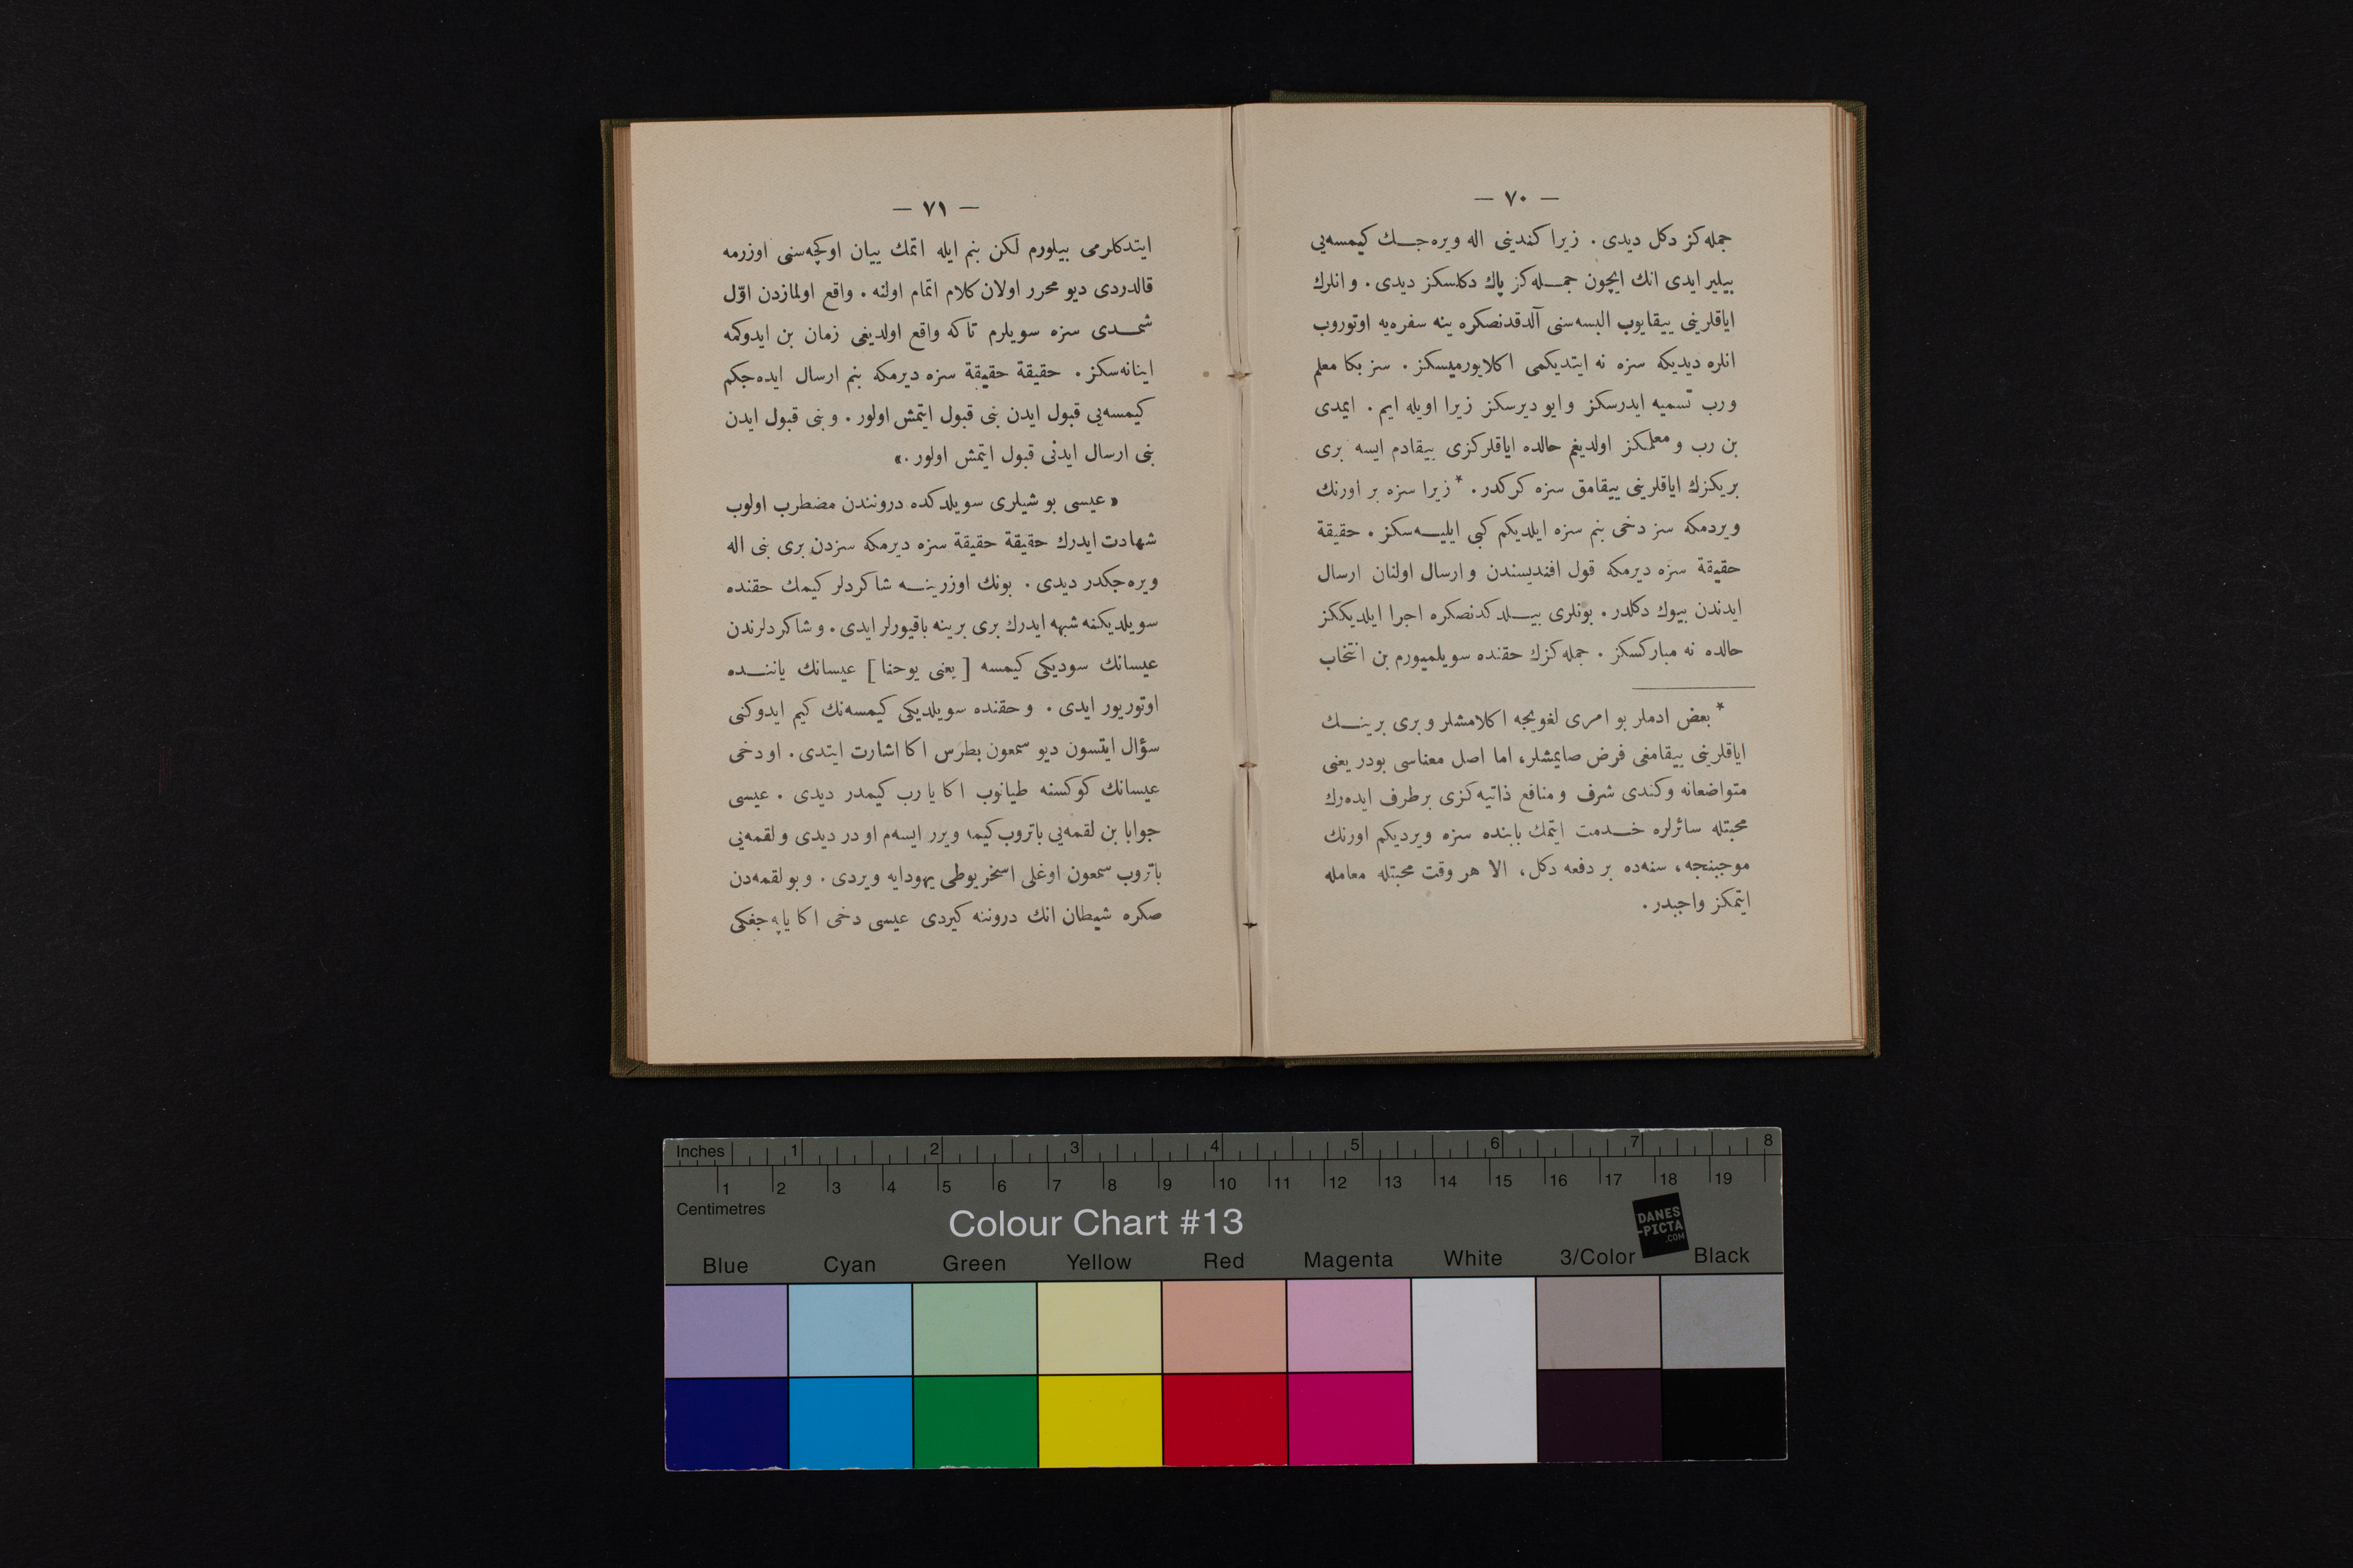 — ٧٠ —
جمله‌كز دكل ديدى . زيرا كندينى اله ويره جـك كيمسه‌يى
بيلير ايدى انك ايچون جمـله‌كز پاك دكلسكز ديدى . وانلرك
اياقلرينى ييقايوب البسه‌سنى آلدقدنصكره ينه سفره‌يه اوتوروب
انلره ديديكه سزه نه ايتديكمى اكلايورميسكز . سز بكا معلم
ورب تسميه ايدرسكز وايو ديرسكز زيرا اويله ايم . ايمدى
بن رب ومعلمكز اولديغم حالده اياقلركزى ييقادم ايسه برى
بريكزك اياقلرينى ييقامق سزه كركدر . * زيرا سزه بر اورنك
ويردمكه سز دخى بنم سزه ايلديكم كبى ايليـه‌سكز . حقيقة
حقيقة سزه ديرمكه قول افنديسندن وارسال اولنان ارسال
ايدندن بيوك دكلدر . بونلرى بيـلدكدنصكره اجرا ايلديككز
حالده نه مباركسكز . جمله‌كزك حقنده سويلميورم بن انتخاب
* بعض ادملر بو امرى لغويجه اكلامشلر وبرى برينـك
اياقلرينى ييقامغى فرض صايمشلر، اما اصل معناسى بودر يعنى
متواضعانه وكندى شرف ومنافع ذاتيه‌كزى برطرف ايده‌رك
محبتله سائرلره خـدمت ايتمك بابنده سزه ويرديكم اورنك
موجبنجه، سنه‌ده بر دفعه دكل، الا هر وقت محبتله معامله
ايتمكز واجبدر .
— ٧١ —
ايتدكلرمى بيلورم لكن بنم ايله اتمك ييان اوكچه‌سنى اوزرمه
قالدردى ديو محرر اولان كلام اتمام اولنه . واقع اولمازدن اوّل
شمـدى سزه سويلرم تاكه واقع اولديغى زمان بن ايدوكمه
اينانه‌سكز . حقيقة حقيقة سزه ديرمكه بنم ارسال ايده‌جكم
كيمسه‌يى قبول ايدن بنى قبول ايتمش اولور . وبنى قبول ايدن
بنى ارسال ايدنى قبول ايتمش اولور .»
« عيسى بو شيلرى سويلدكده دروننده‌ن مضطرب اولوب
شهادت ايدرك حقيقة حقيقة سزه ديرمكه سزدن برى بنى اله
ويره‌جكدر ديدى . بونك اوزرينـه شاكردلر كيمك حقنده
سويلديكنه شبهه ايدرك برى برينه باقيورلر ايدى . وشاكردلرندن
عيسانك سوديكى كيمسه [ يعنى يوحنا ] عيسانك ياننـده
اوتوريور ايدى . وحقنده سويلديكى كيمسه‌نك كيم ايدوكنى
سؤال ايتسون ديو سمعون بطرس اكا اشارت ايتدى . اودخى
عيسانك كوكسنه طيانوب اكا يا رب كيمدر ديدى . عيسى
جوابا بن لقمه‌يى باتروب كيمه ويرر ايسه‌م او در ديدى ولقمه‌يى
باتروب سمعون اوغلى اسخريوطى يهودايه ويردى . وبو لقمه‌دن
صكره شيطان انك دروننه كيردى عيسى دخى اكا ياپه‌جغكى
Inches 1 2 3 4 5 6 7 8
1 2 3 4 5 6 7 8 9 10 11 12 13 14 15 16 17 18 19
Centimetres
Colour Chart #13
DANES
-PICTA
.COM
Blue Cyan Green Yellow Red Magenta White 3/Color Black